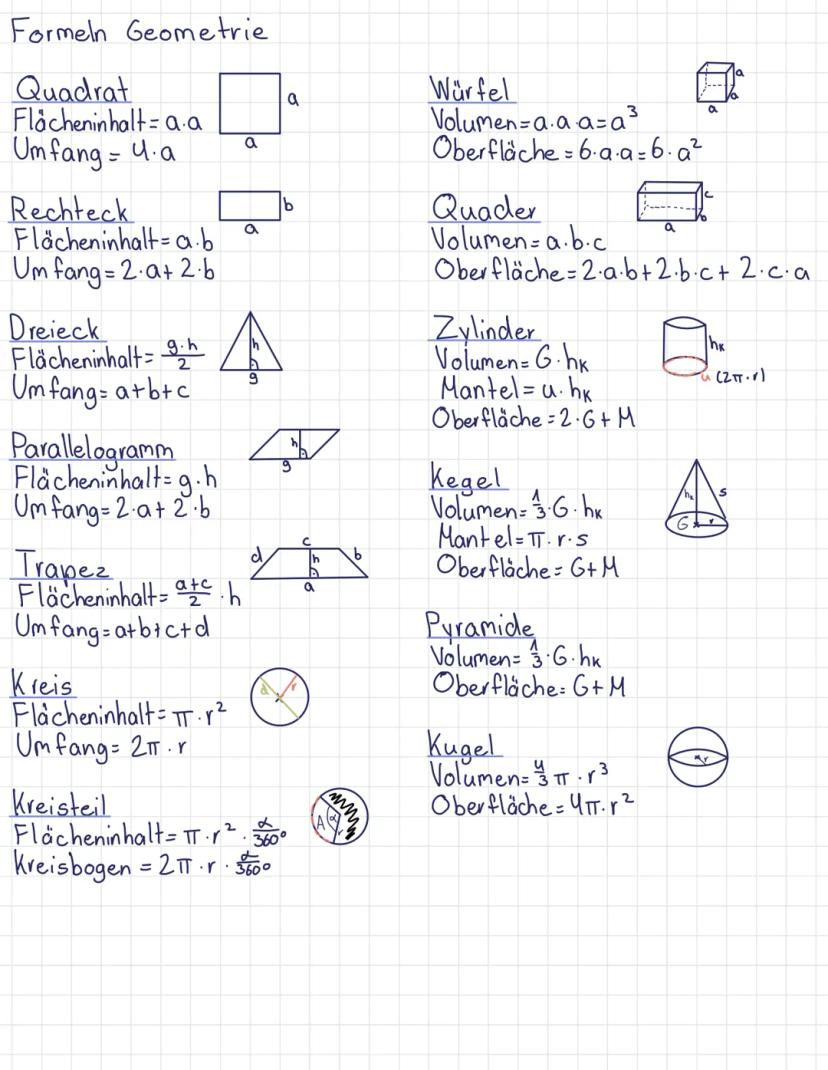 Formeln Geometrie
Quadrat
Flächeninhalt = a·a
Umfang = 4·a
a
a
Rechteck
Flächeninhalt = a·b
Umfang = 2·a + 2·b
b
a
Dreieck
Flächeninhalt = g·h/2
Umfang = a+b+c
h
g
Parallelogramm
Flächeninhalt = g·h
Umfang = 2·a + 2·b
h
g
Trapez
Flächeninhalt = a+c/2 · h
Umfang = a+b+c+d
c
d
h
b
a
Kreis
Flächeninhalt = π·r²
Umfang = 2π·r
d
r
Kreisteil
Flächeninhalt = π·r² · α/360°
Kreisbogen = 2π·r · α/360°
A
α
r
Würfel
Volumen = a·a·a = a³
Oberfläche = 6·a·a = 6·a²
a
a
a
Quader
Volumen = a·b·c
Oberfläche = 2·a·b + 2·b·c + 2·c·a
c
b
a
Zylinder
Volumen = G·hK
Mantel = u·hK
Oberfläche = 2·G + M
hK
u (2π·r)
Kegel
Volumen = 1/3·G·hK
Mantel = π·r·s
Oberfläche = G+M
hK
s
G
r
Pyramide
Volumen = 1/3·G·hK
Oberfläche = G+M
Kugel
Volumen = 4/3 π·r³
Oberfläche = 4π·r²
r